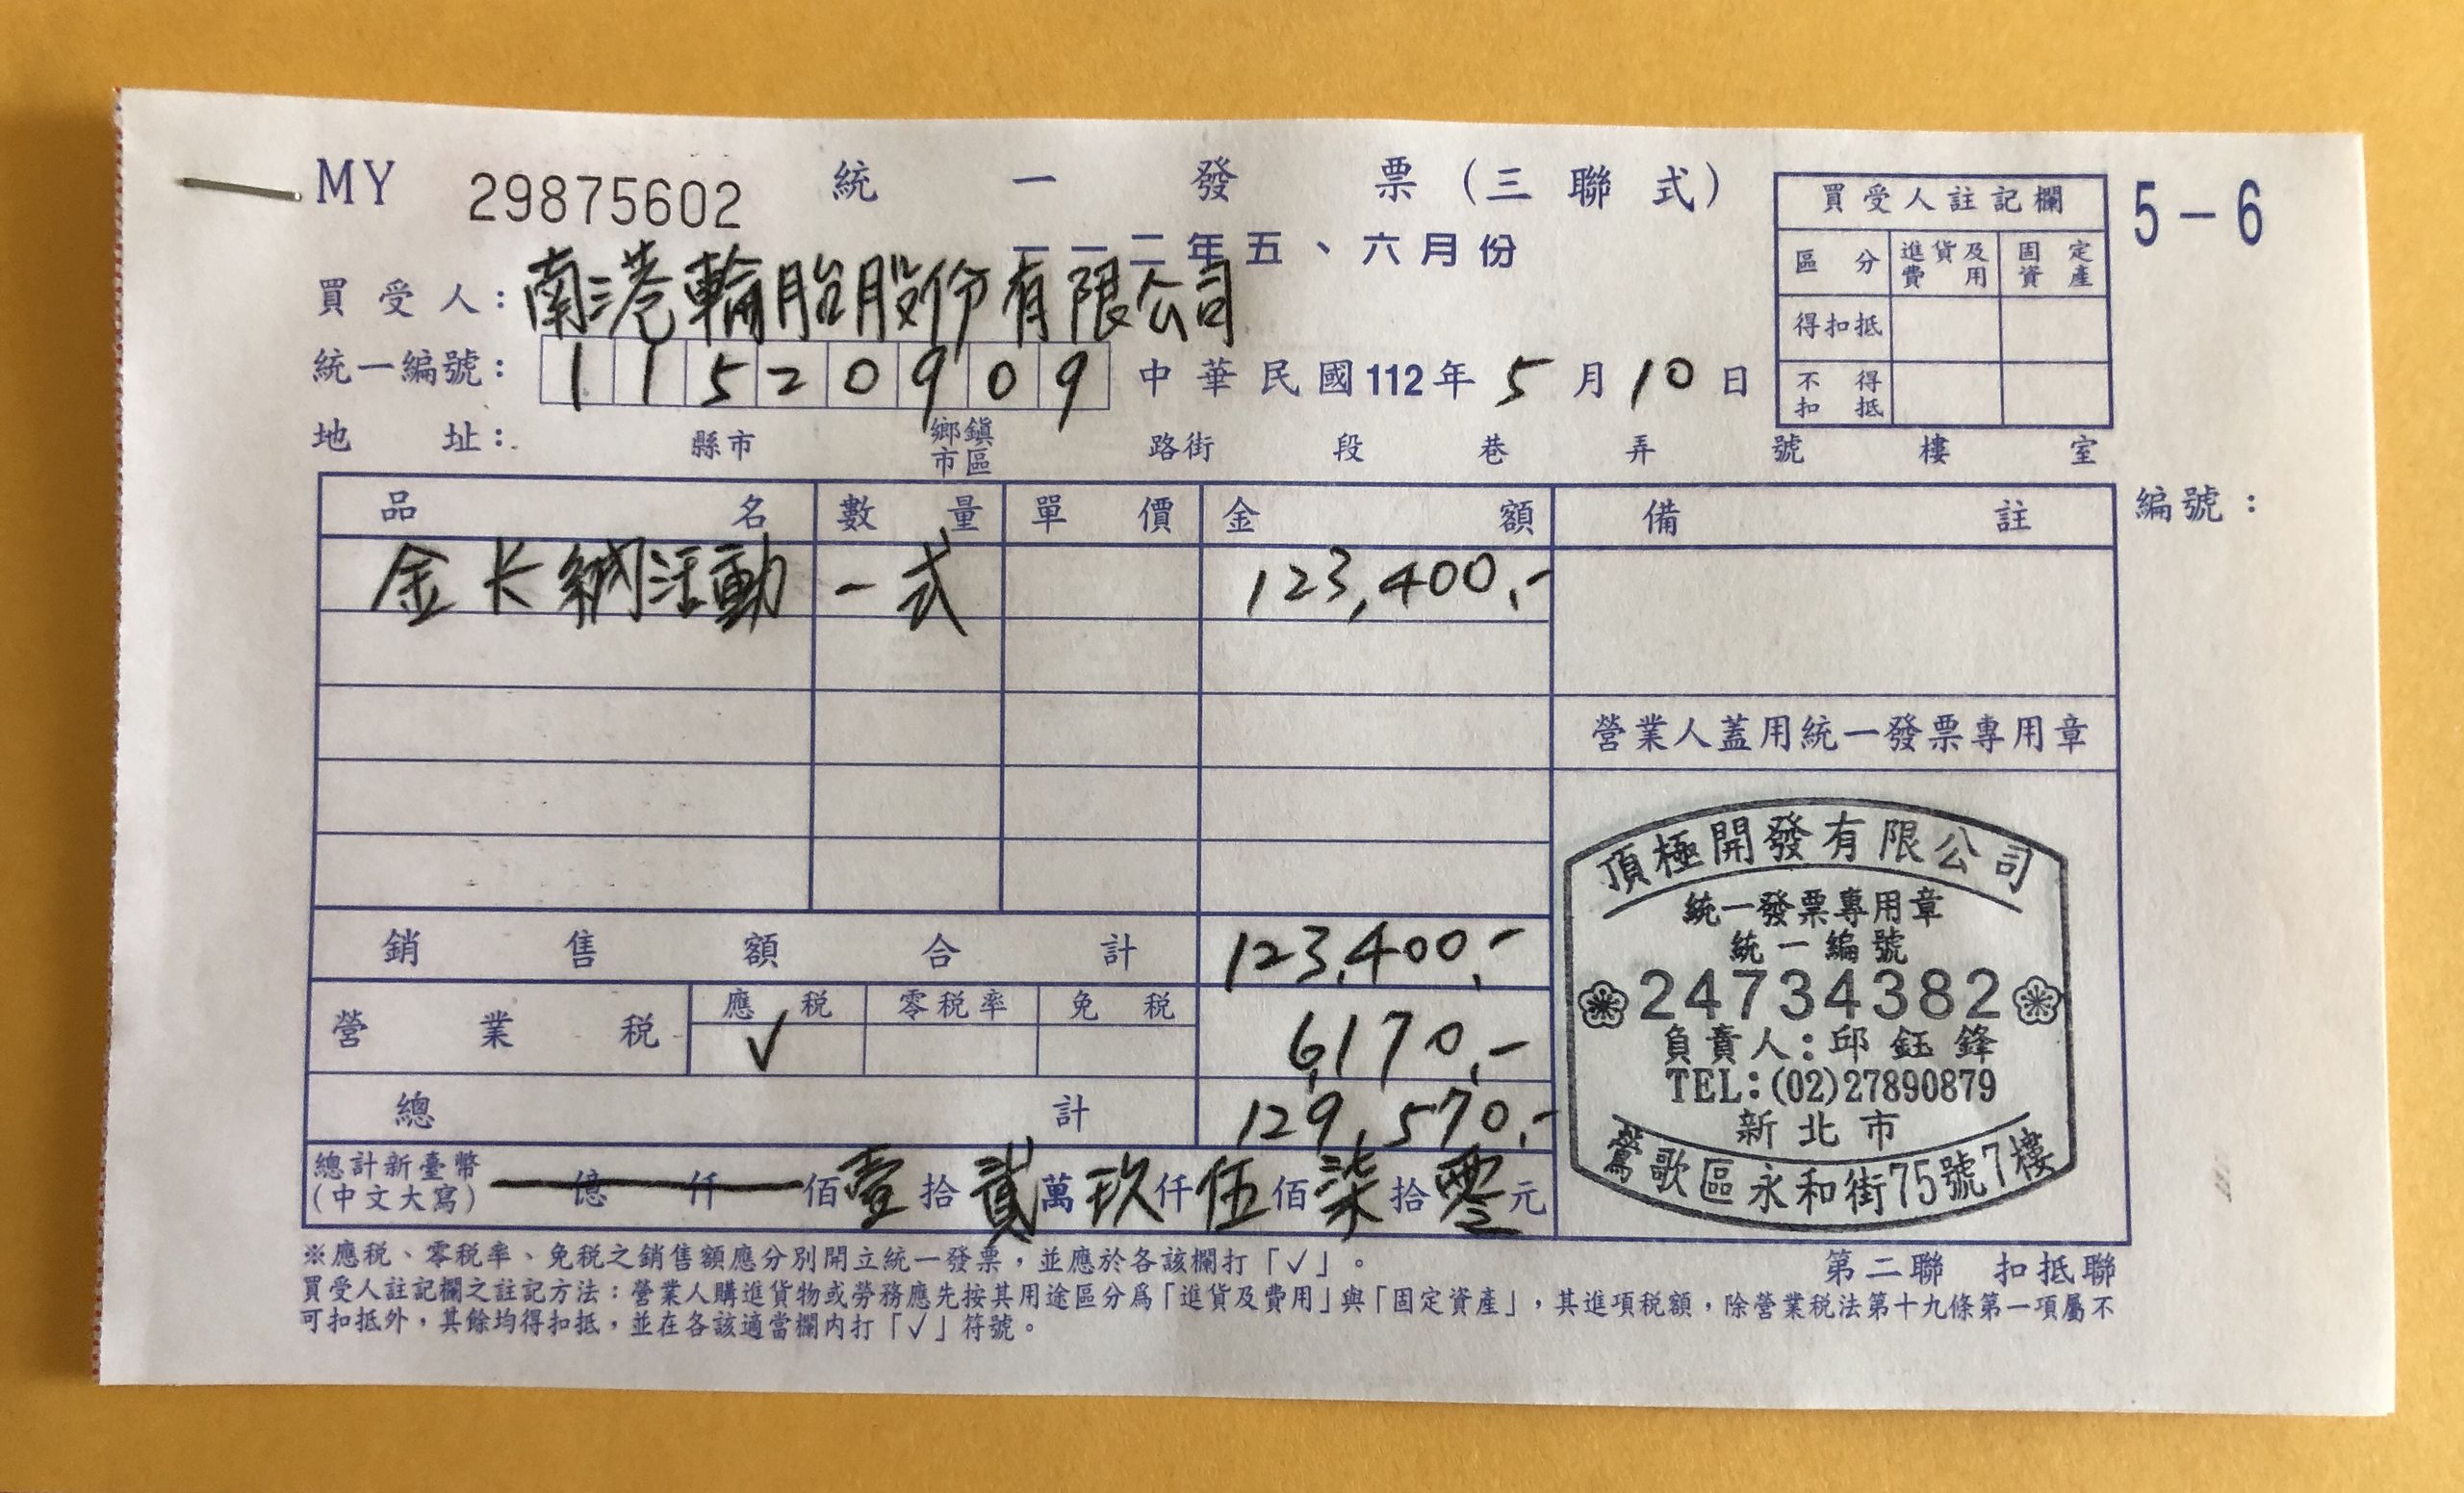 MY 29875602 統一發票(三聯式) 5-6
一一二年五、六月份
買受人註記欄
區分 進貨及費用 固定資產
得扣抵
不得扣抵
買受人: 南港輪胎股份有限公司
統一編號: 11520909 中華民國112年5月10日
地址: 縣市 鄉鎮市區 路街 段 巷 弄 號 樓 室
品名 數量 單價 金額 備註 編號:
金长鋼活動 一式 123,400.-
營業人蓋用統一發票專用章
銷售額合計 123,400.-
營業稅 應稅 零稅率 免稅
√ 6,170.-
總計 129,570.-
總計新臺幣(中文大寫) 億 仟 佰壹拾貳萬玖仟伍佰柒拾零元
頂極開發有限公司
統一發票專用章
統一編號
24734382
負責人:邱鈺鋒
TEL:(02)27890879
新北市
鶯歌區永和街75號7樓
※應稅、零稅率、免稅之銷售額應分別開立統一發票,並應於各該欄打「√」。
第二聯 扣抵聯
買受人註記欄之註記方法:營業人購進貨物或勞務應先按其用途區分爲「進貨及費用」與「固定資產」,其進項稅額,除營業稅法第十九條第一項屬不
可扣抵外,其餘均得扣抵,並在各該適當欄內打「√」符號。